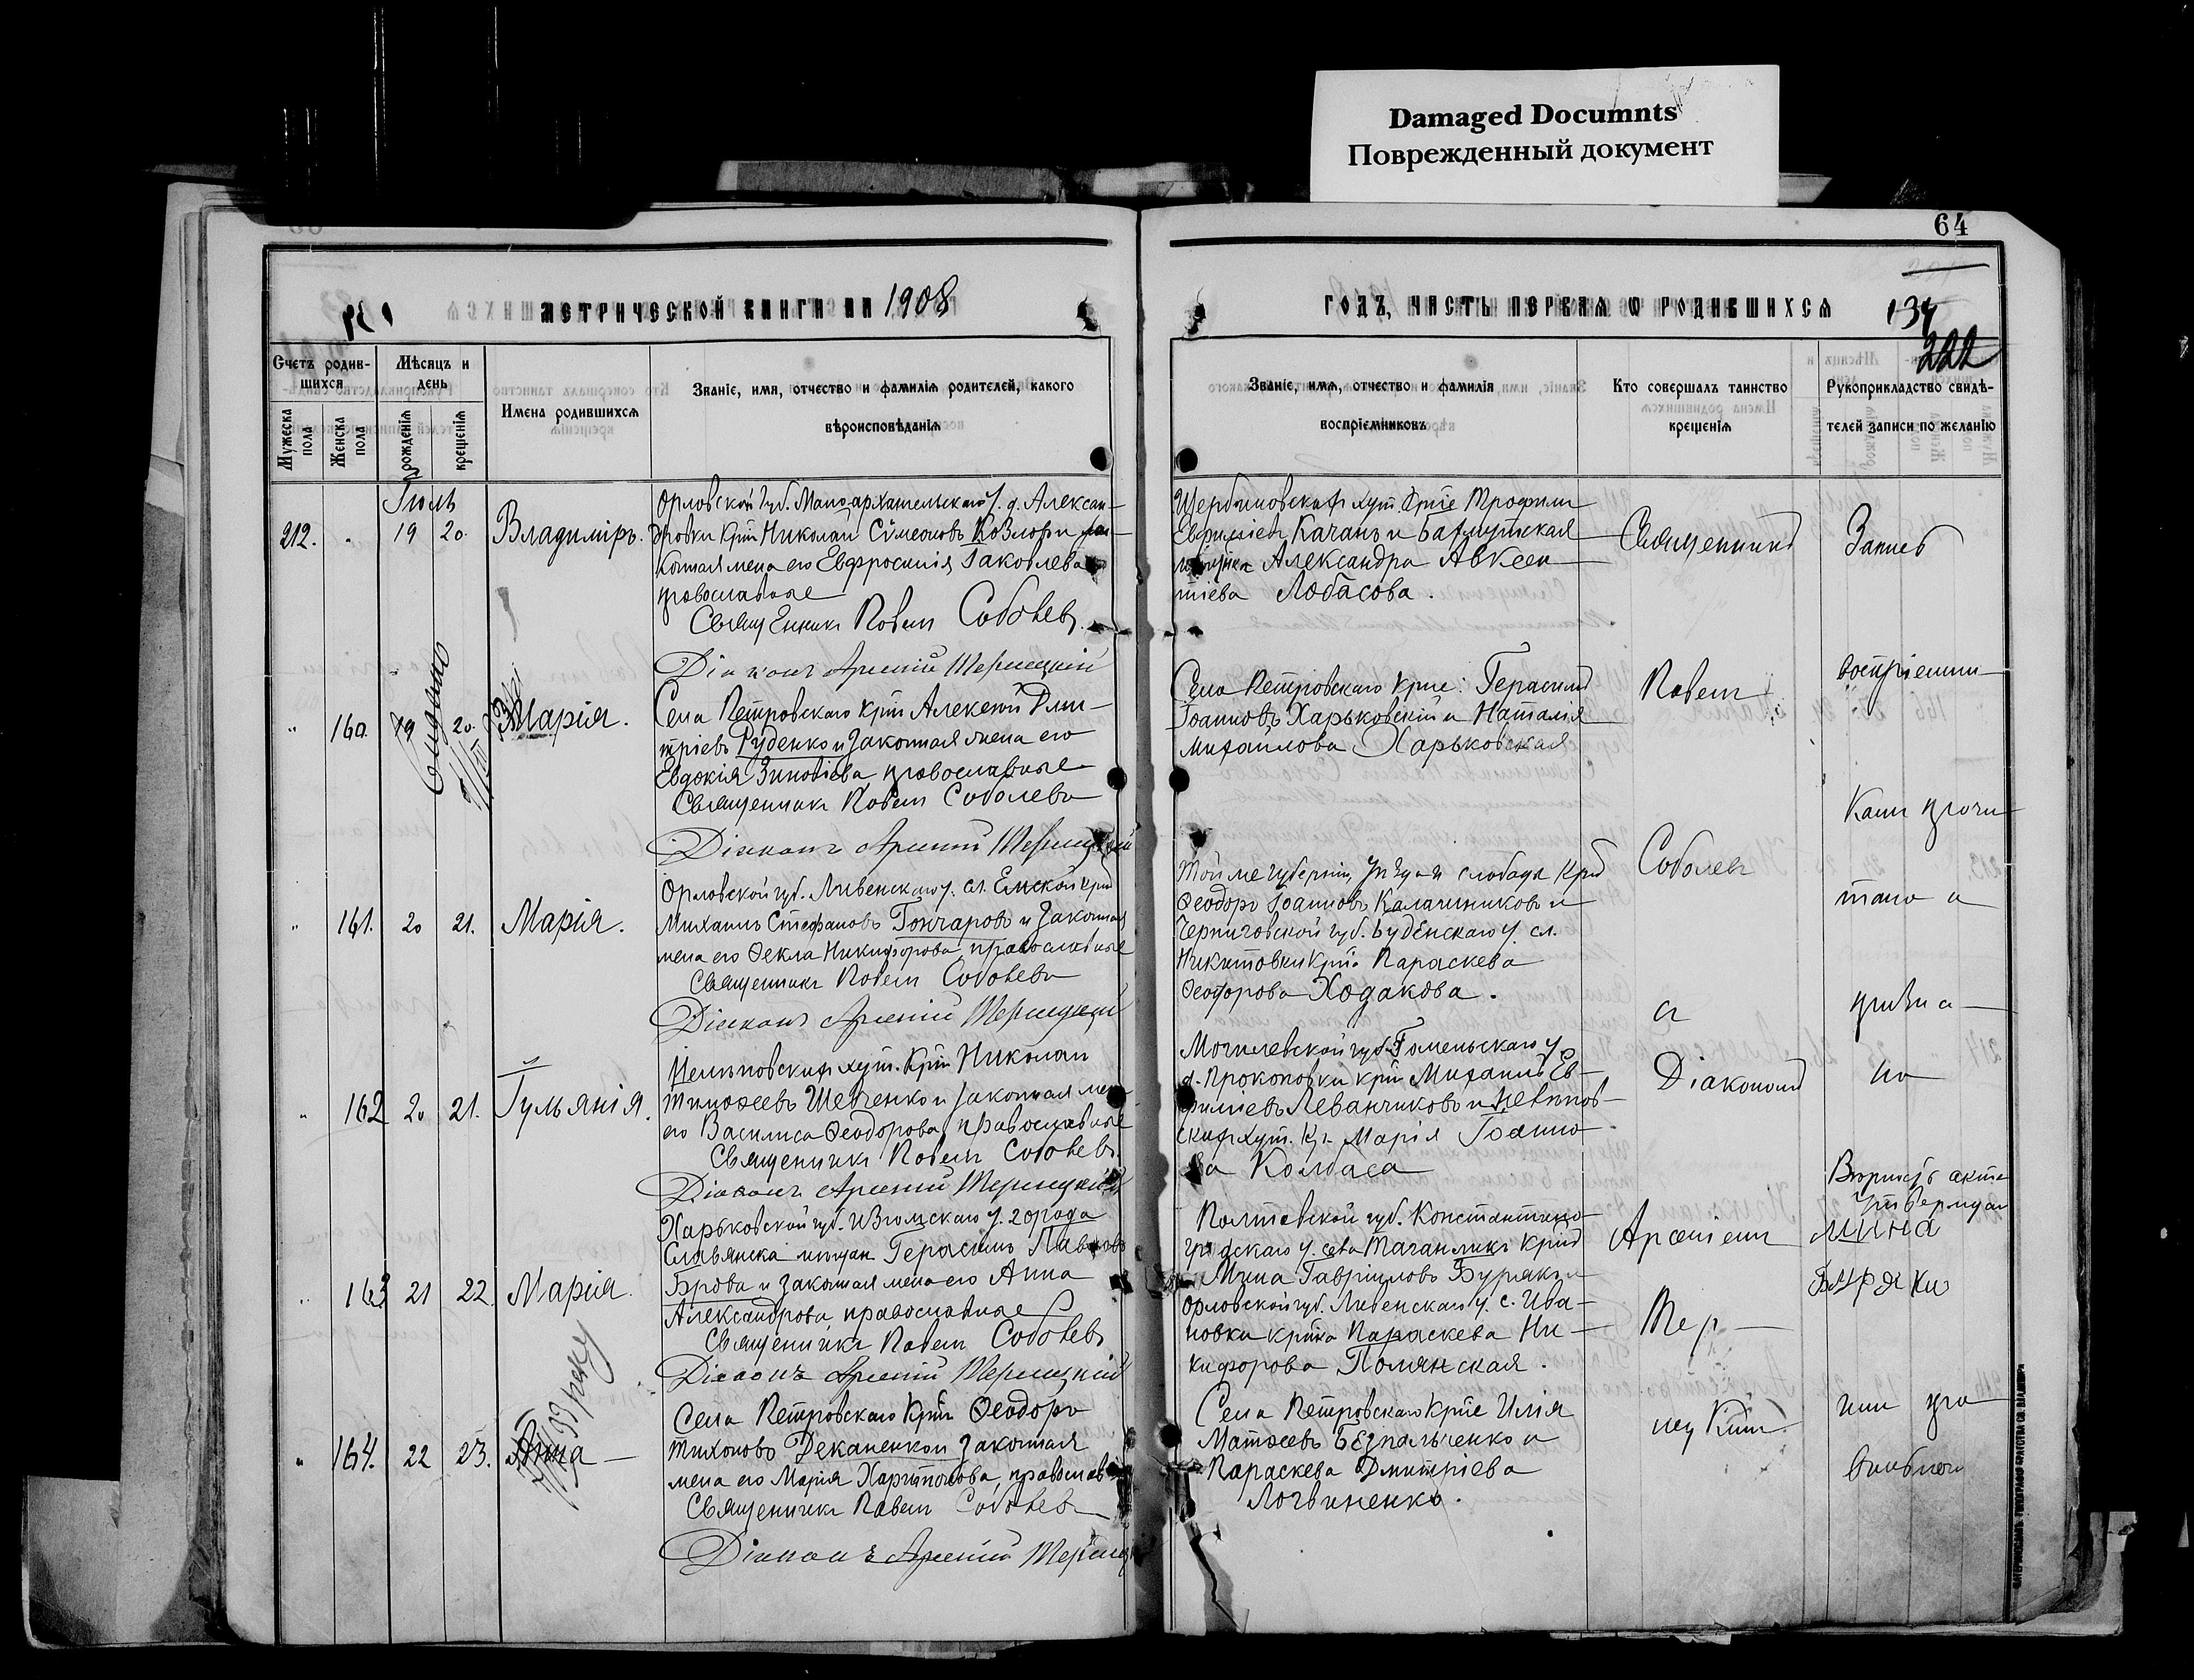 Damaged Documnts
Поврежденный документ
64
МЕТРИЧЕСКОЙ КНИГИ НА 1908
ГОДЪ, ЧАСТЬ ПЕРВАЯ Ѡ РОДИВШИХСЯ
134
222
Счетъ родив-
шихся
Мужеска пола
Женска пола
Мѣсяцъ и
день
рожденія
крещенія
Имена родившихся
Званіе, имя, отчество и фамилія родителей, какого
вѣроисповѣданія
Званіе, имя, отчество и фамилія
воспріемниковъ
Кто совершалъ таинство
крещенія
Рукоприкладство свидѣ-
телей записи по желанію
Іюль
212. " 19 20. Владиміръ.
Орловской губ. Малоархангельскаго у. д. Алексан-
дровки крнъ Николай Сѵмеоновъ Козловъ и за-
конная жена его Евфросинія Іаковлева
православные
Священникъ Павелъ Соболевъ
Діаконъ Арсеній
Щербиновскихъ хут. крне Трофимъ
Евфиміевъ Качанъ и Бахмутская
мѣщанка Александра Авксен-
тіева Лобасова.
" 160. 19 20. Марія.
Села Петровскаго крнъ Алексій Дими-
тріевъ Руденко и законная жена его
Евдокія Зиновіева православные
Священникъ Павелъ Соболевъ
Діаконъ Арсеній
Села Петровскаго крне: Герасимъ
Іоанновъ Харьковскій и Наталія
Михайлова Харьковская
" 161. 20 21. Марія.
Орловской губ. Ливенскаго у. сл.
Михаилъ Стефановъ Гончаровъ и законная
жена его Ѳекла Никифорова, православные
Священникъ Павелъ Соболевъ
Діаконъ Арсеній
Той же губерніи, слобода крнъ
Ѳеодоръ Іоанновъ Калашниковъ и
Черниговской губ. у. сл.
Никитовки крнка Параскева
Ѳеодорова Ходакова.
" 162 20 21. Іульянія.
хут. крнъ Николай
Тимоѳеевъ Шевченко и законная жена
его Василиса Ѳеодорова, православные
Священникъ Павелъ Соболевъ
Діаконъ Арсеній
Могилевской губ. Гомельскаго у
д. Прокоповки крнъ Михаилъ Ев-
фиміевъ Леванчиковъ и
скихъ хут. кр. Марія Іоанно-
ва Колбаса
" 163 21 22. Марія.
Харьковской губ. Изюмскаго у. города
Славянска мѣщан. Герасимъ Павловъ
Брова и законная жена его Анна
Александрова, православные
Священникъ Павелъ Соболевъ
Діаконъ Арсеній
Полтавской губ. Константино-
градскаго у. села крнъ
Мина Гавріиловъ Бурякъ и
Орловской губ. Ливенскаго у. с. Ива-
новки крнка Параскева Ни-
кифорова Полянская.
" 164. 22 23. Анна
Села Петровскаго крнъ Ѳеодоръ
Тихоновъ Деканенко и законная
жена его Марія Харитонова, православ
Священникъ Павелъ Соболевъ
Діаконъ Арсеній
Села Петровскаго крне Илія
Матѳеевъ Безпальченко и
Параскева Дмитріева
Логвиненко.
Священникъ
Павелъ
Соболевъ
и
Діакономъ
Арсеніемъ
Тер-
ницкимъ
Запись
воспріемни-
камъ прочи-
тана и
призна-
на
Мина
Бурякъ